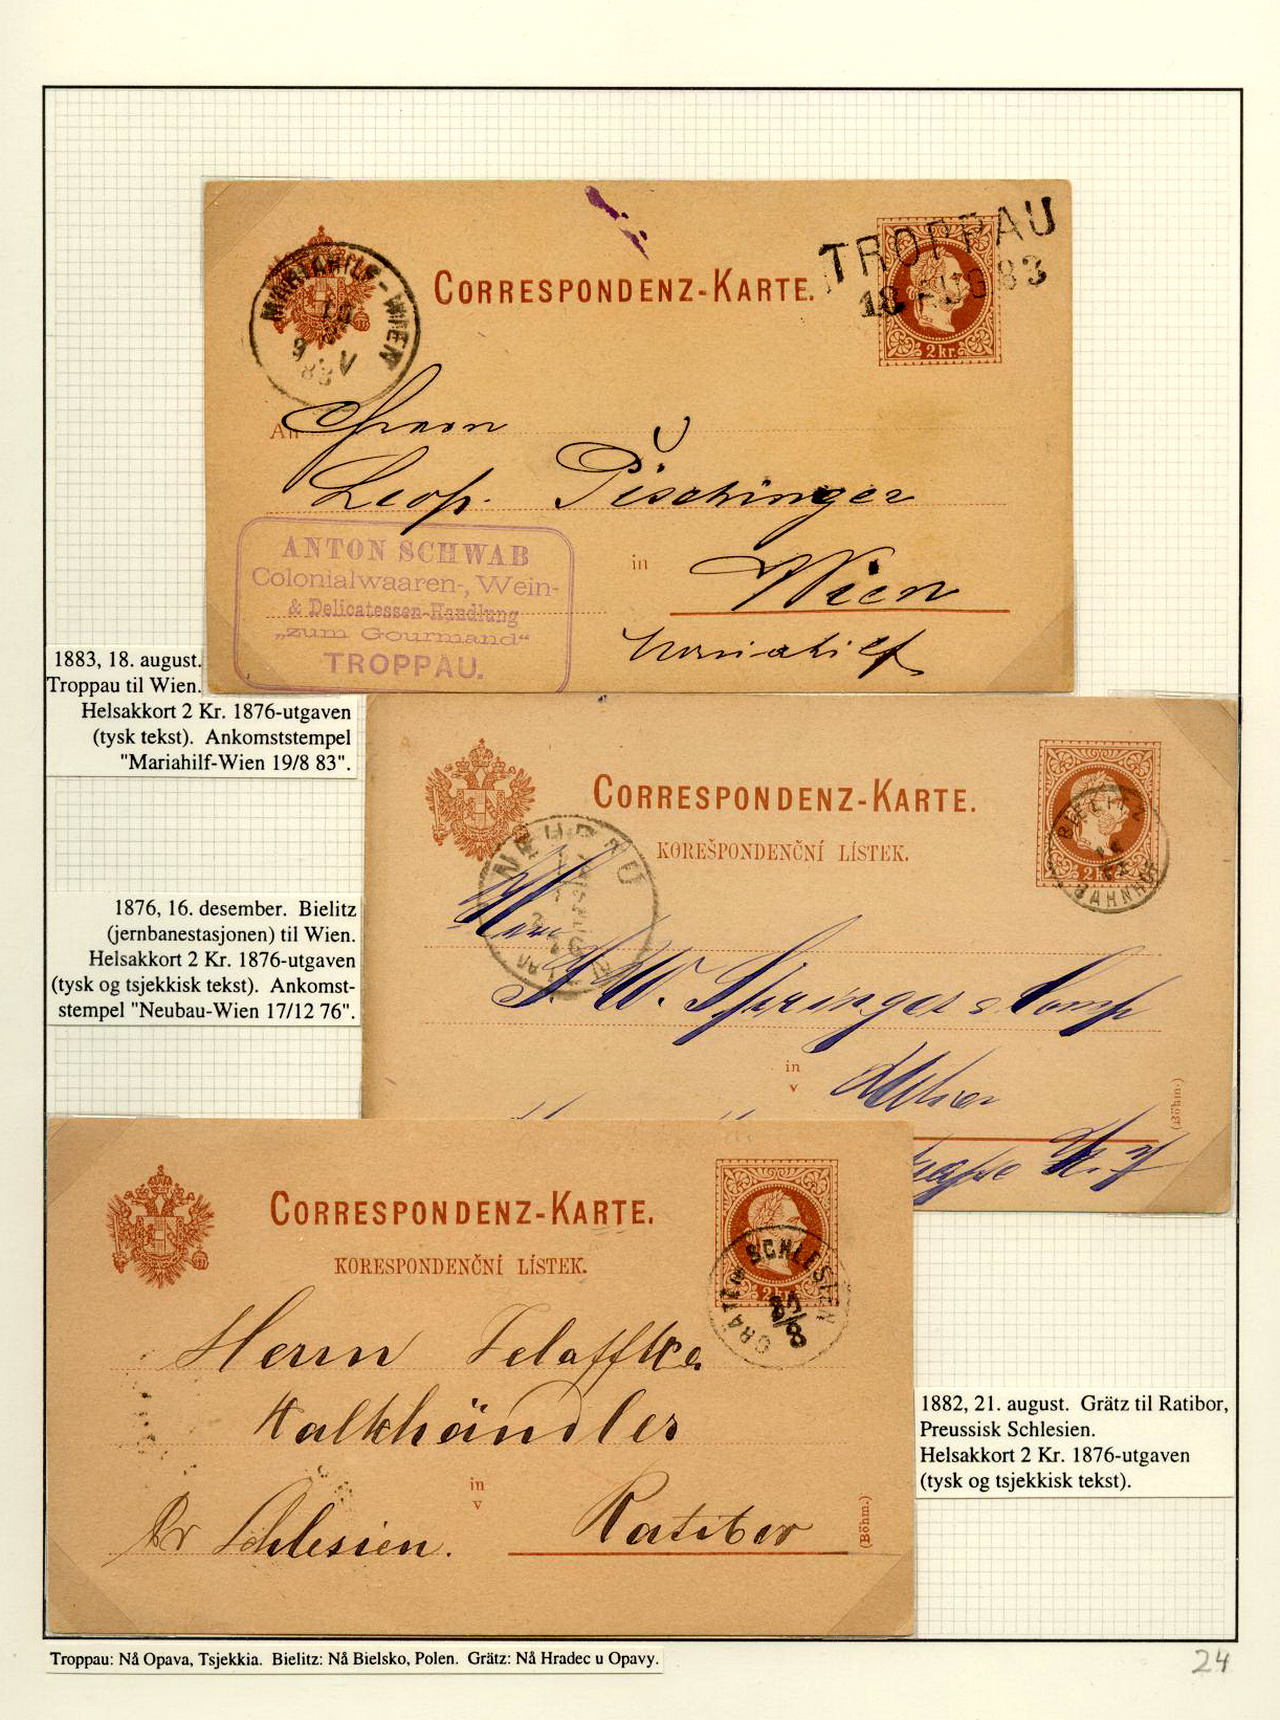 MARIAHILF-WIEN
19
8
83
V
CORRESPONDENZ-KARTE.
TROPPAU
18 AUG 83
2 kr.
An Herrn
Leop. Pischinger
in Wien
Mariahilf
ANTON SCHWAB
Colonialwaaren-, Wein-
& Delicatessen-Handlung
„zum Gourmand“
TROPPAU.
1883, 18. august.
Troppau til Wien.
Helsakkort 2 Kr. 1876-utgaven
(tysk tekst). Ankomststempel
"Mariahilf-Wien 19/8 83".
CORRESPONDENZ-KARTE.
KOREŠPONDENČNÍ LÍSTEK.
2 kr.
BAHNHOF
NEUBAU
Herrn
J. W. Springer & Comp
in
v
Wien
(Böhm.)
1876, 16. desember. Bielitz
(jernbanestasjonen) til Wien.
Helsakkort 2 Kr. 1876-utgaven
(tysk og tsjekkisk tekst). Ankomst-
stempel "Neubau-Wien 17/12 76".
CORRESPONDENZ-KARTE.
KORESPONDENČNÍ LÍSTEK.
GRÄTZ SCHLESIEN
Herrn
Kalkhändler
in
v
Pr Schlesien. Ratibor
(Böhm.)
1882, 21. august. Grätz til Ratibor,
Preussisk Schlesien.
Helsakkort 2 Kr. 1876-utgaven
(tysk og tsjekkisk tekst).
Troppau: Nå Opava, Tsjekkia. Bielitz: Nå Bielsko, Polen. Grätz: Nå Hradec u Opavy.
24